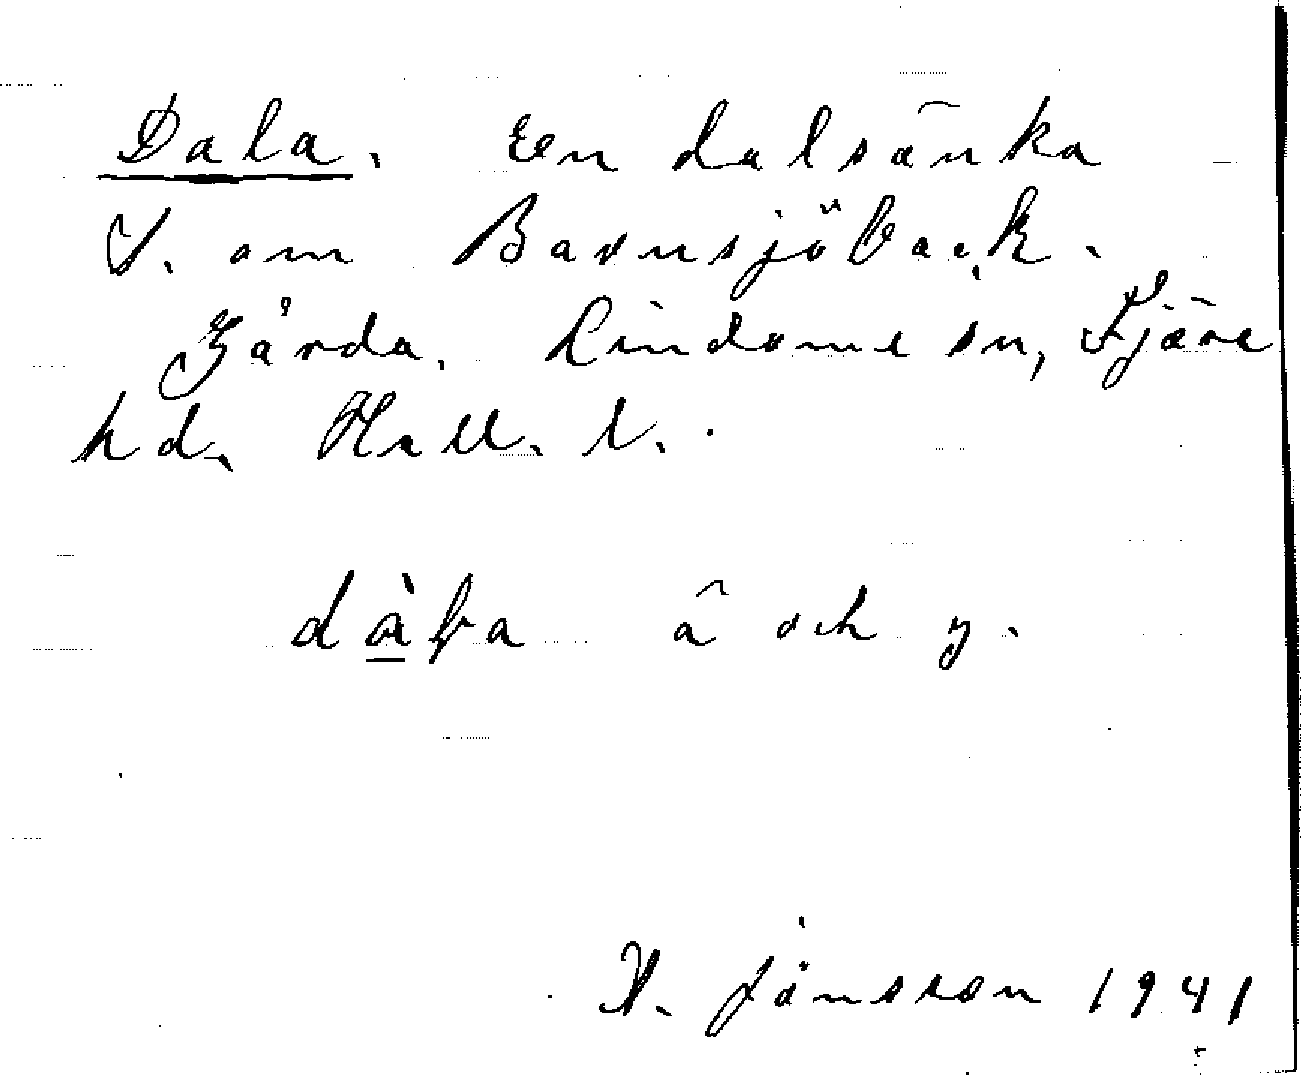 Dala. En dalsänka
V. om Barnsjöbäck.
Gårda. Lindome sn, Fjäre
hd. Hall. l.
dàɫa â och y.
H. Jönsson 1941